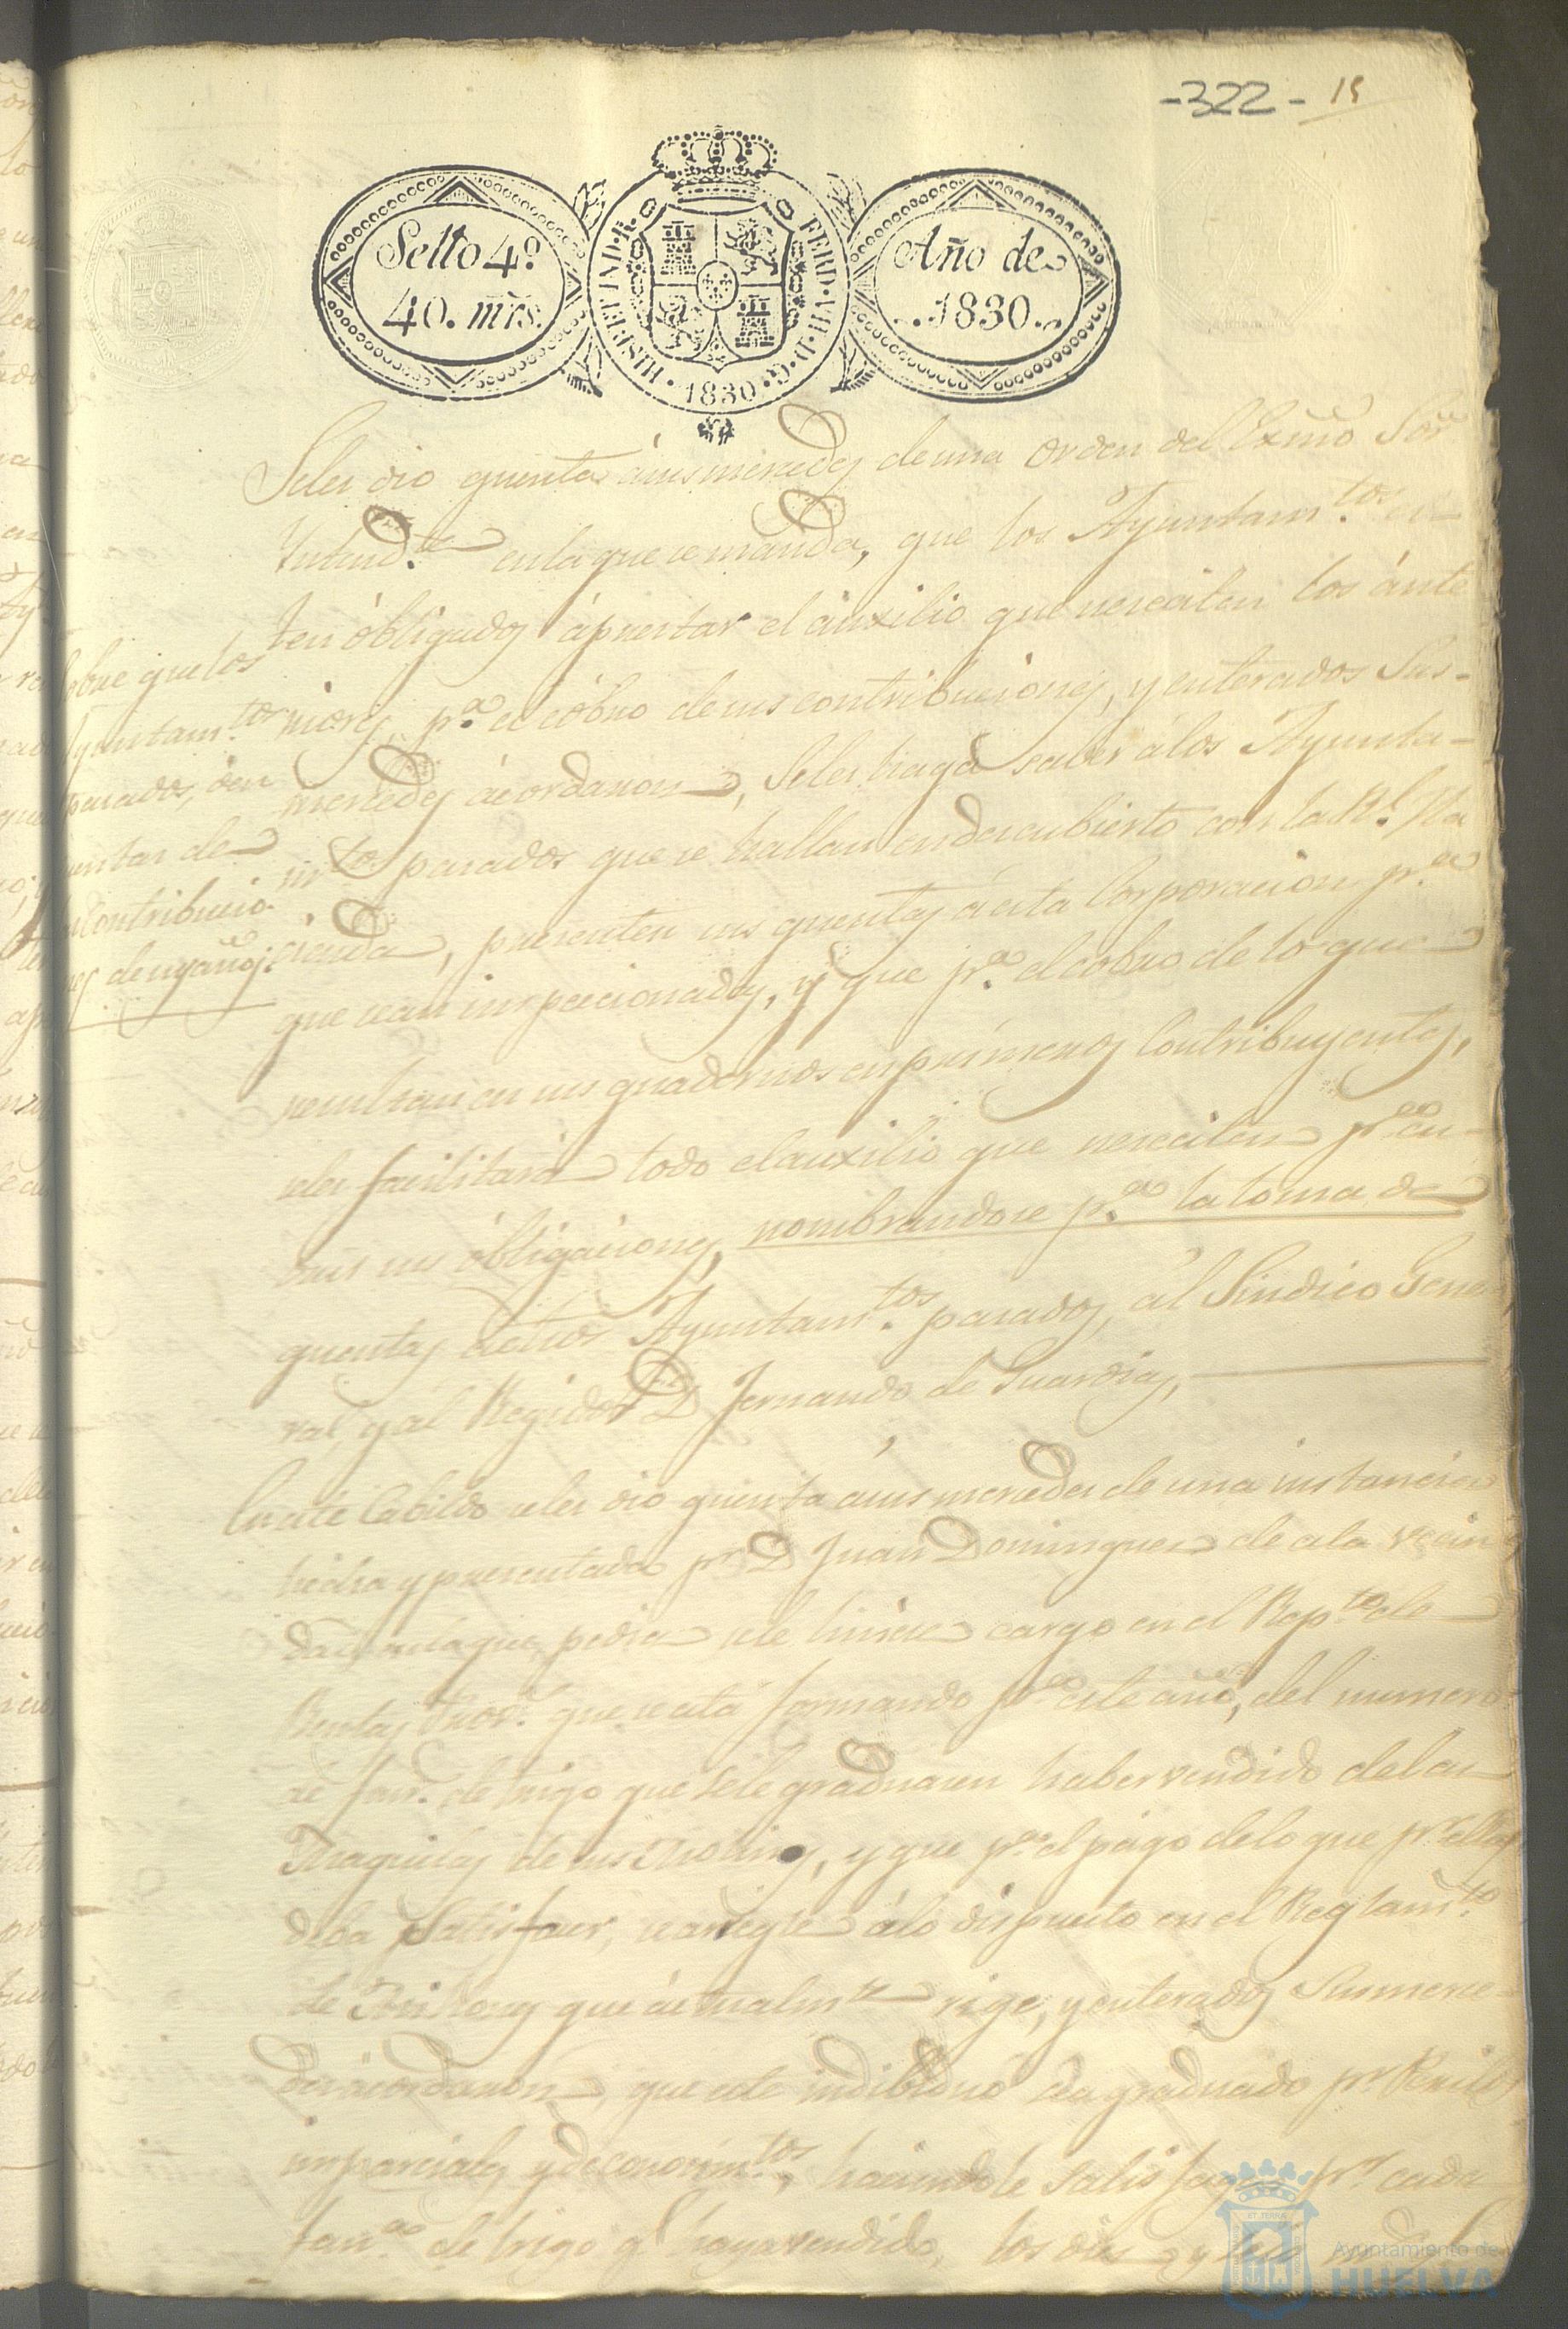 -322- 15
Sello 4º.
40. mrs.
HISP.ET IND.R.
FERD.VII.D.G.
1830
Año de
1830.
Seles dio quenta ásus mercedes de una orden del Exmo Sor
Intend.te en la que se manda, que los Ayuntam.tos es-
ten óbligados áprestar el áuxilio que nesesiten los ánte
riores p.a el cóbro de sus contribuciónes, y enterados Sus-
mercedes ácordaron, Seles haga saber álos Ayunta-
m.tos pasados que se hallan en descubierto con la Rl. Ha
cienda, presenten sus quentas á esta Corporacion p.a
que sean inspeccionadas, y que p.a el cobro de lo que
resultan en sus quadernos en primeros Contribuyentes,
seles facilitará todo el auxilio que nesesiten p.a cu-
brir sus óbligaciones, nombrandose p.a la toma de
quentas áestos Ayuntam.tos pasados, ál Sindico Gene
ral, y al Regidor D Fernando de Guardias,
Sobre que los
Ayuntam.tos
pasados, den
cuentas de
contribucio
nes de sus años.
En este Cabildo seles dio quenta ásus mercedes de una instancia
hecha y presentada pr D Juan Dominguez de esta vecin
dad, en la que pedia sele hiciese cargo en el Rep.to de
Rentas Prov.s que se está formando p.a este año, del numero
de fan.s de trigo que sele graduasen haber vendido de las
Maquilas de sus Molinos, y que p.a el págo de lo que pr ellas
deba satisfacer, se arregle álo dispuesto en el Reglam.to
de que áctualm.te rige, y enterados Susmerce
des ácordaron, que este indibiduo sea graduado pr Peritos
imparciales y de conocim.tos, haciendole satisfaga pr cada
fan.a de trigo q.e haya vendido, los dies y seis
Ayuntamiento de
HUELVA